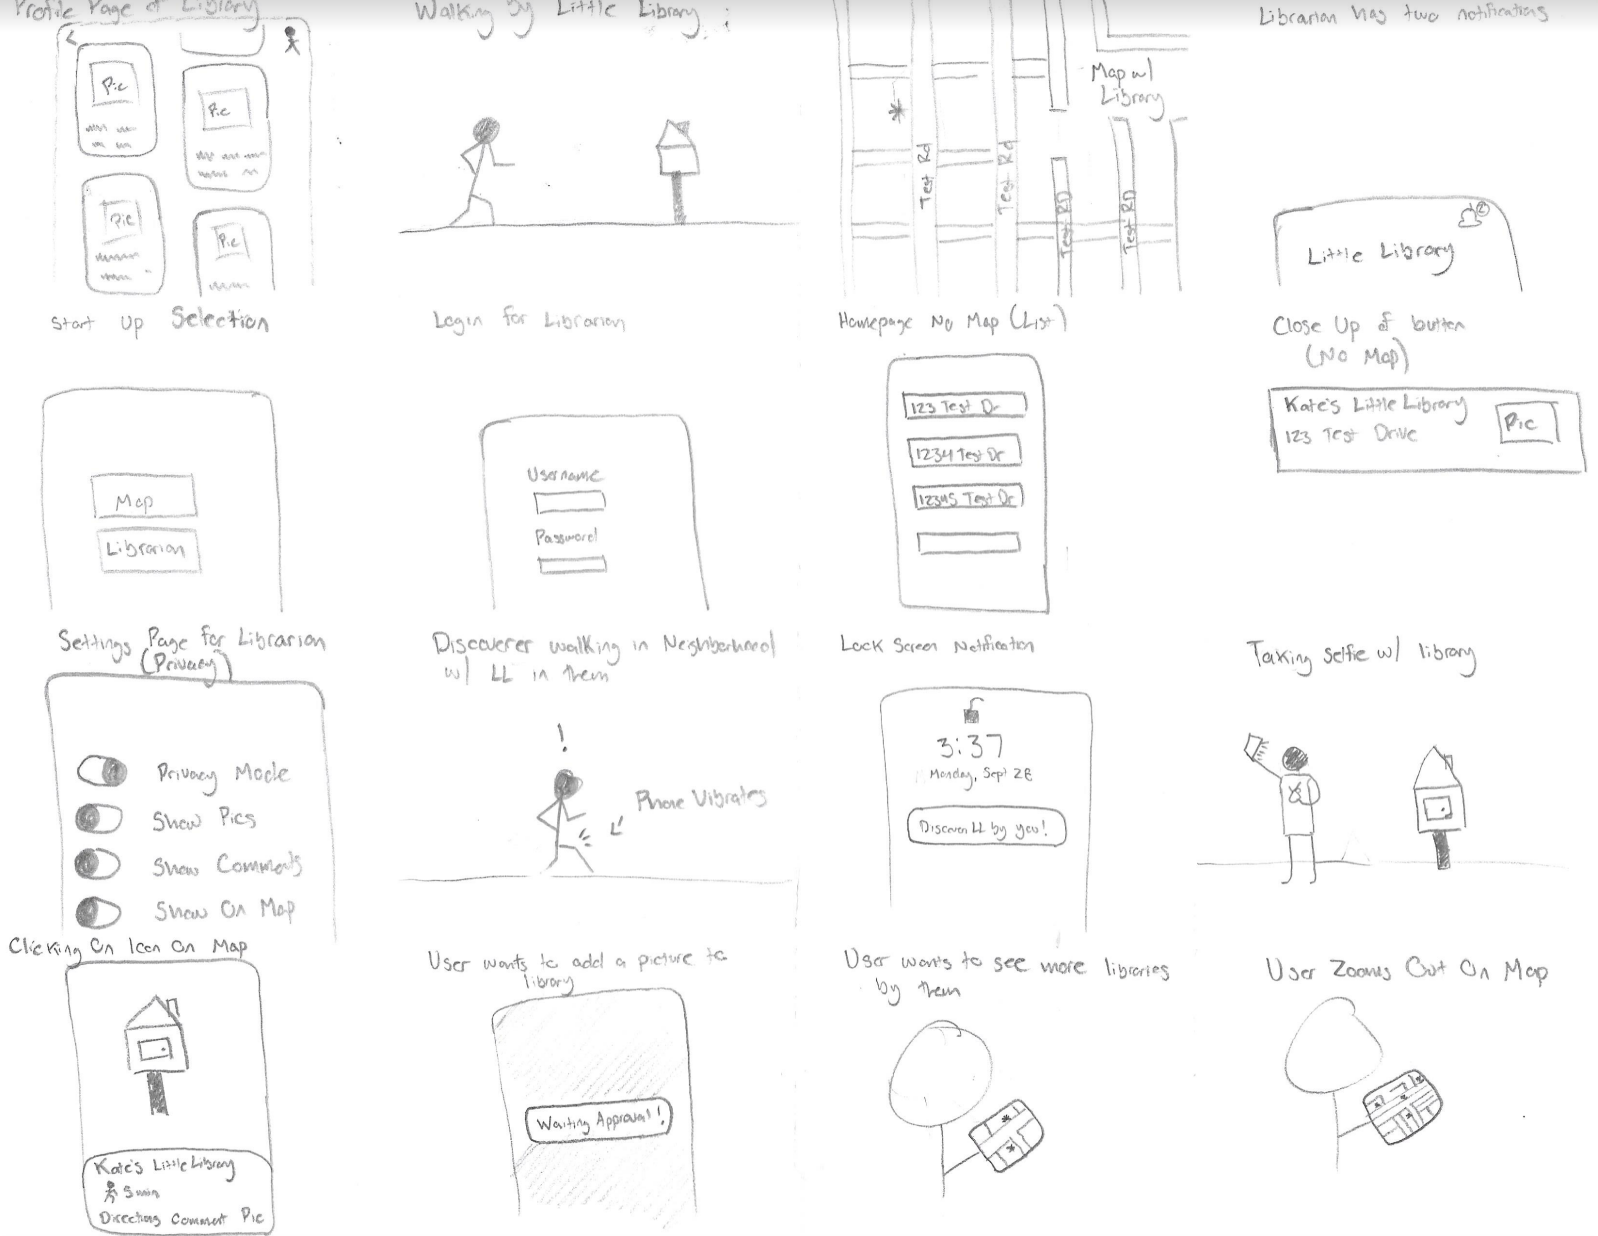 Profile Page of Library
Pic
Pic
Pic
Pic
Walking by Little Library :
Map w/
Library
Test Rd
Test Rd
Test RD
Test RD
Librarian has two notifications
2
Little Library
Start Up Selection
Map
Librarian
Login for Librarian
Username
Password
Homepage No Map (List)
123 Test Dr
1234 Test Dr
12345 Test Dr
Close Up of button
(No Map)
Kate's Little Library
123 Test Drive
Pic
Settings Page for Librarian
(Privacy)
Privacy Mode
Show Pics
Show Comments
Show On Map
Discoverer walking in Neighborhood
w/ LL in them
!
Phone Vibrates
Lock Screen Notification
3:37
Monday, Sept 28
Discover LL by you!
Taking selfie w/ library
Clicking On Icon On Map
Kate's Little Library
5 min
Directions Comment Pic
User wants to add a picture to
library
Waiting Approval!
User wants to see more libraries
by them
User Zooms Out On Map